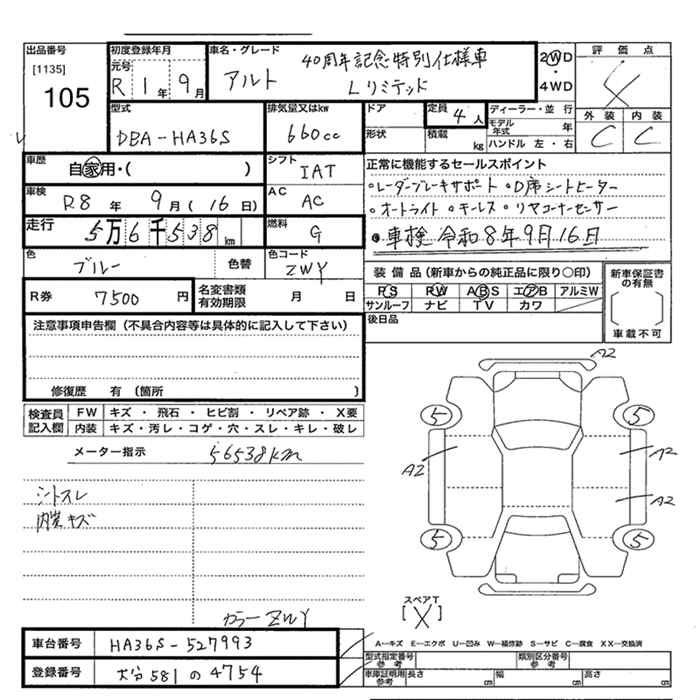 出品番号 初度登録年月 車名・グレード 評価点
[1135] 元号 40周年記念特別仕様車 2WD
105 R 1年 9月 アルト Lリミテッド 4WD
型式 排気量又はkw ドア 定員 4人 ディーラー・並行 外装 内装
DBA-HA36S 660cc 形状 積載 kg モデル年式 年 C C
ハンドル 左・右
車歴 自家用・( ) シフト IAT 正常に機能するセールスポイント
車検 R8年 9月(16日) AC AC ○レーダーブレーキサポート ○D席シートヒーター
○オートライト ○キーレス ○リヤコーナーセンサー
走行 5万6千538km 燃料 G ◎車検 令和8年9月16日
色 ブルー 色替 色コード ZWY 装備品(新車からの純正品に限り○印) 新車保証書の有無
R券 7500円 名変書類有効期限 月 日 PS PW ABS エアB アルミW
サンルーフ ナビ TV カワ
車載不可
注意事項申告欄(不具合内容等は具体的に記入して下さい) 後日品
修復歴 有(箇所 )
検査員記入欄 FW キズ・飛石・ヒビ割・リペア跡・X要
内装 キズ・汚レ・コゲ・穴・スレ・キレ・破レ
メーター指示 56538km
A2
5 5
A2 A2
A2
5 5
シートスレ
内装キズ
スペアT
[X]
カラーZWY
車台番号 HA36S-527993
登録番号 大分 581 の 4754
A―キズ E―エクボ U―凹み W―補修跡 S―サビ C―腐食 XX―交換済
型式指定番号参考 類別区分番号参考
車庫証明用参考 長さ cm 幅 cm 高さ cm